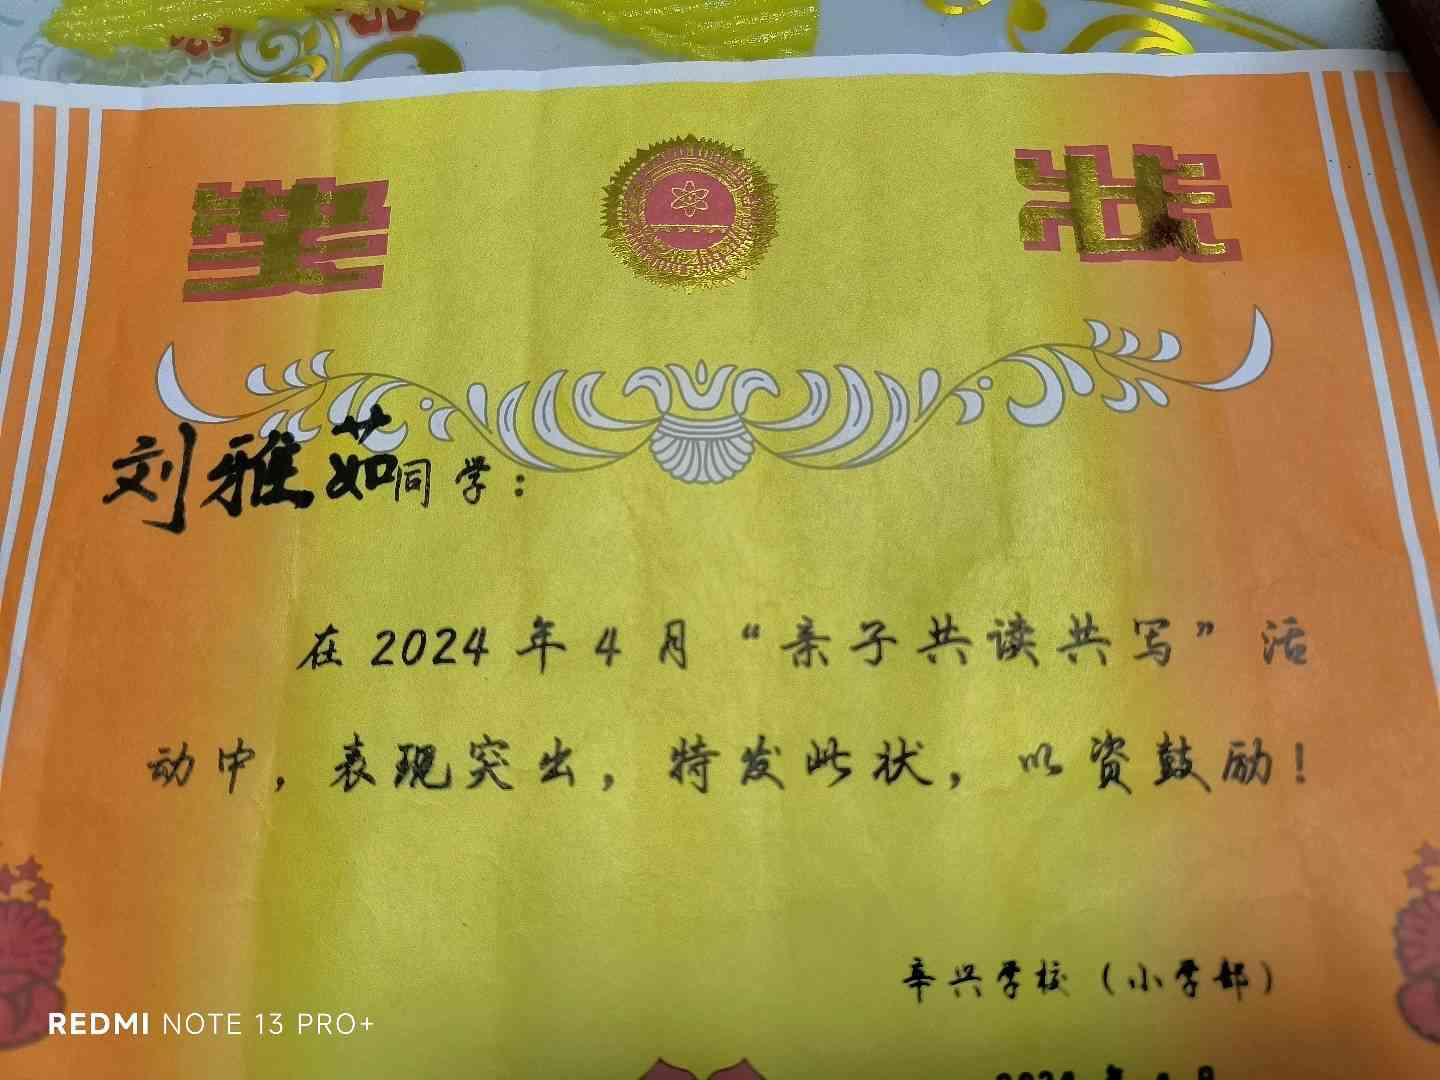 奖状
刘雅茹同学：
在2024年4月“亲子共读共写”活
动中，表现突出，特发此状，以资鼓励！
辛兴学校（小学部）
2024年4月
REDMI NOTE 13 PRO+